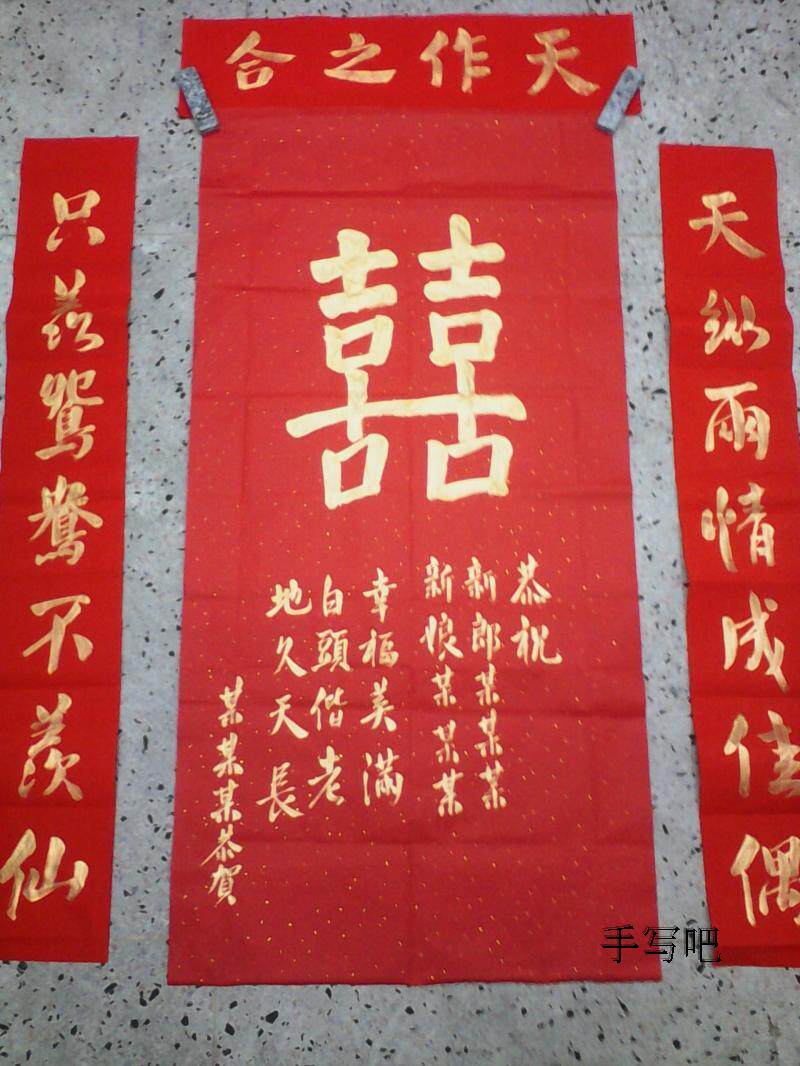 天作之合
天纵兩情成佳偶
囍
恭祝
新郎某某某
新娘某某某
幸福美滿
白頭偕老
地久天長
某某某恭賀
只羡鴛鴦不羡仙
手写吧